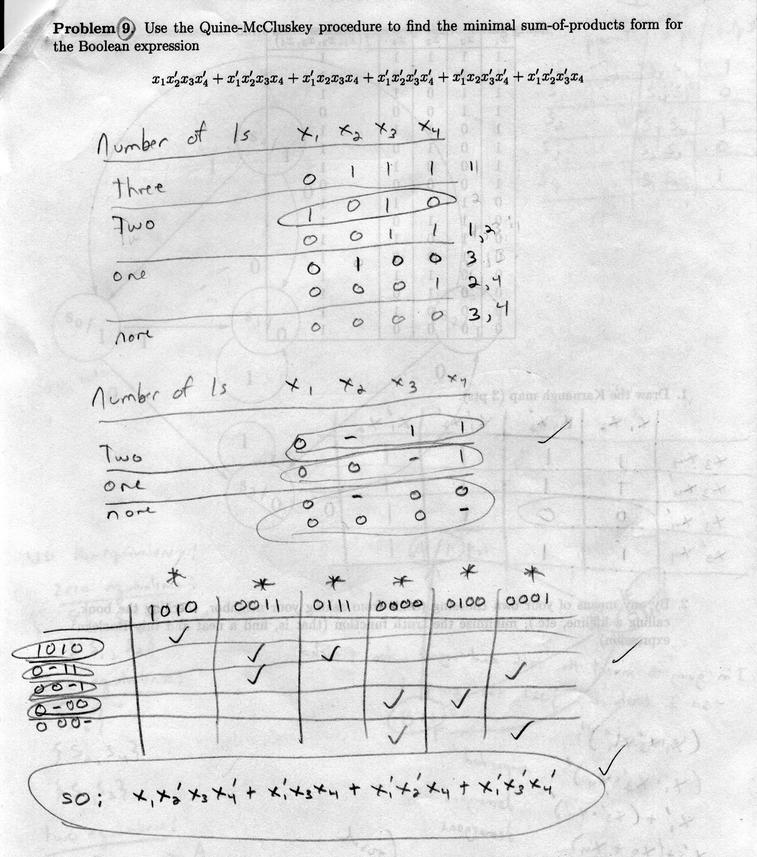 Problem 9. Use the Quine-McCluskey procedure to find the minimal sum-of-products form for
the Boolean expression
x₁x₂′x₃x₄′ + x₁′x₂′x₃x₄ + x₁′x₂x₃x₄ + x₁′x₂′x₃′x₄′ + x₁′x₂x₃′x₄′ + x₁′x₂′x₃′x₄
Number of 1s x₁ x₂ x₃ x₄
three 0 1 1 1 1
Two 1 0 1 0
0 0 1 1 1,2
one 0 1 0 0 3
0 0 0 1 2,4
none 0 0 0 0 3,4
Number of 1s x₁ x₂ x₃ x₄
Two 0 - 1 1
one 0 0 - 1
none 0 - 0 0
0 0 0 -
* * * * * *
1010 0011 0111 0000 0100 0001
1010 ✓
0-11 ✓ ✓
00-1 ✓ ✓
0-00 ✓ ✓
000- ✓ ✓
so: x₁x₂′x₃x₄′ + x₁′x₃x₄ + x₁′x₂′x₄ + x₁′x₃′x₄′